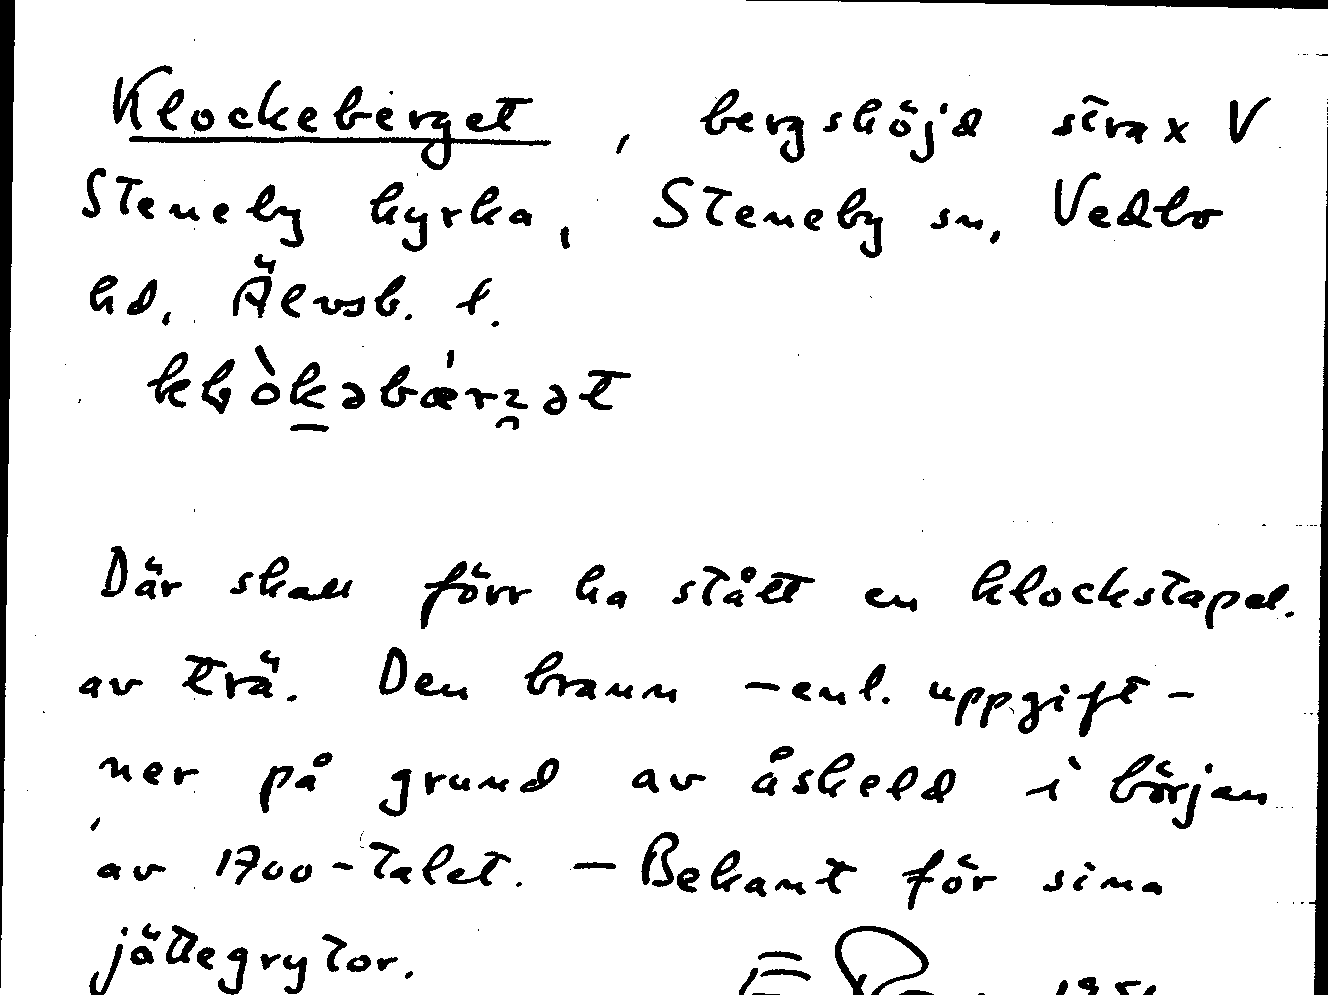 Klockeberget, bergshöjd strax V
Steneby kyrka, Steneby sn, Vedbo
hd, Älvsb. l.
Där skall förr ha stått en klockstapel.
av trä. Den brann – enl. uppgift –
ner på grund av åskeld i början
av 1700-talet. – Bekant för sina
jättegrytor.